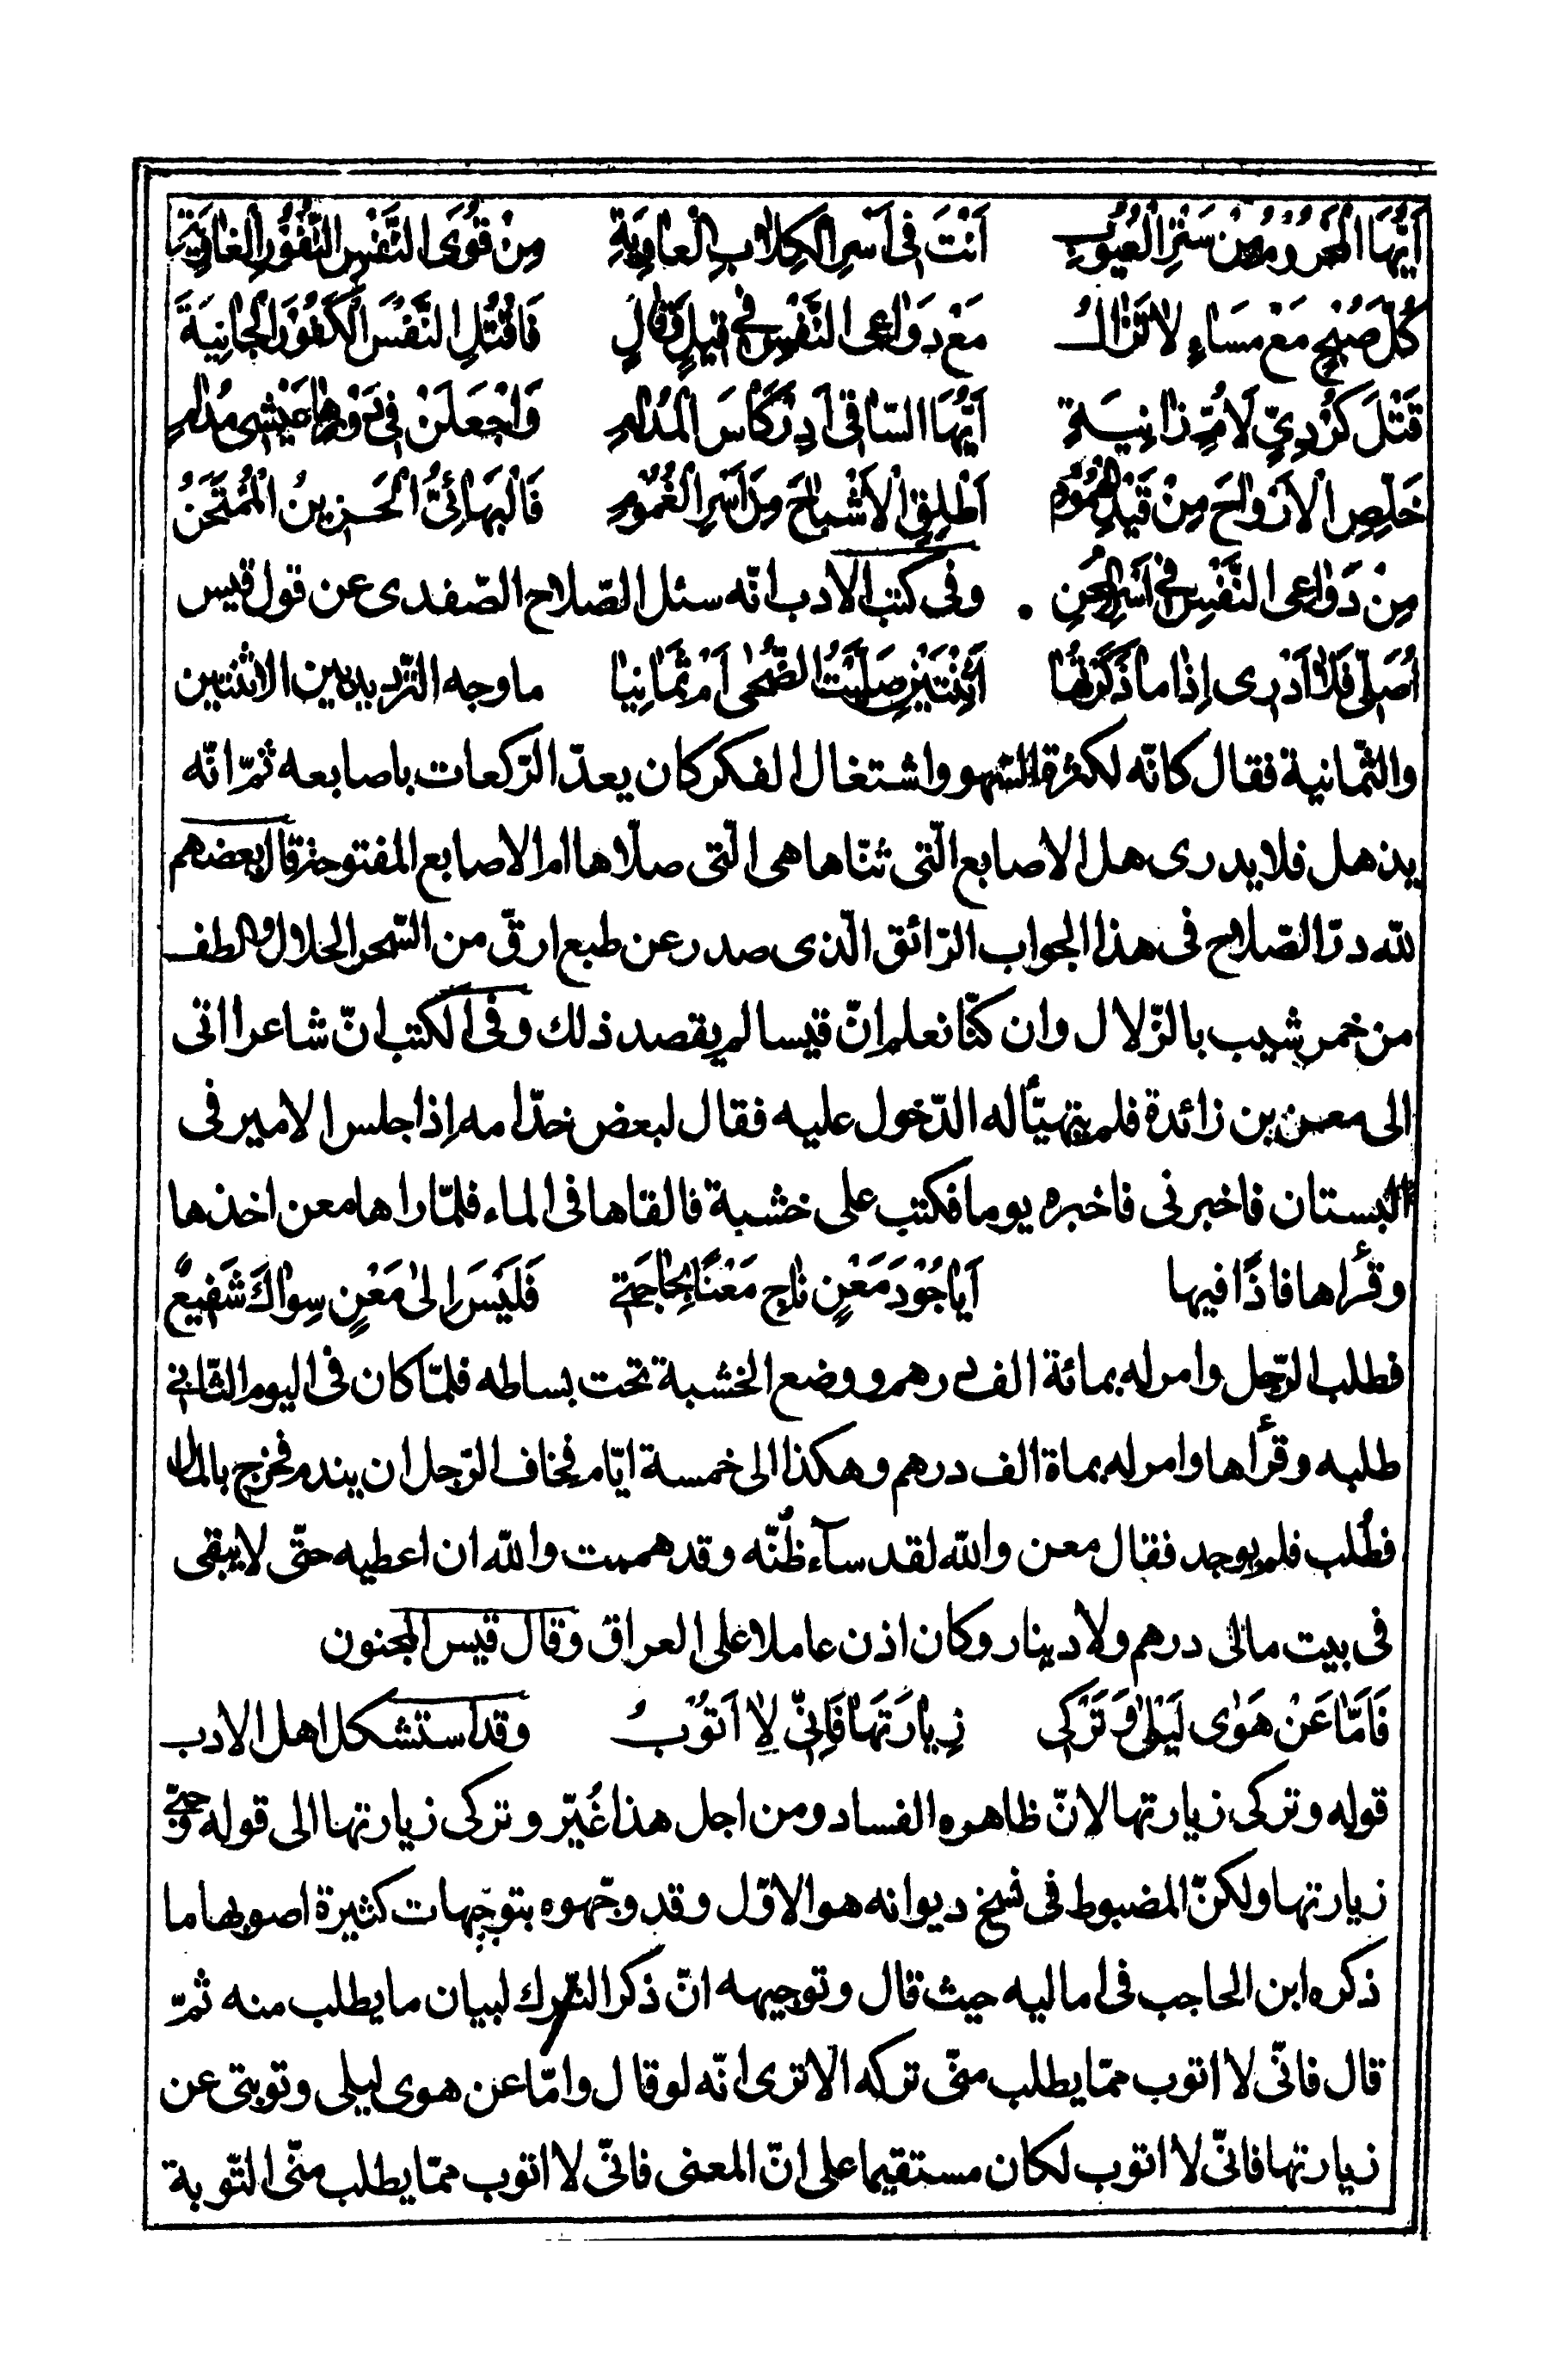 اَيُّهَا الْمَحْرُومُ مِنْ سَتْرِ الْعُيُوبِ اَنْتَ فى اَسْرِ الْكِلابِ الْعاوِيَةِ مِنْ قُوَى النَّفْسِ النُّفُورِ الْغاوِيَةِ
كُلَّ صُبْحٍ مَعْ مَساءٍ لا تَزالُ مَعْ دَواعِى النَّفْسِ فى قيلٍ وَقالٍ فَاقْتُلِ النَّفْسَ الْكَفُورَ الْجانِيَةَ
قَتْلَ كُرْدِىٍّ لِاُمٍّ زانِيَةٍ اَيُّهَا السّاقى اَدِرْ كَاْسَ الْمُدامِ وَاجْعَلَنْ فى دَوْرِها عَيْشى مُدامِ
خَلِّصِ الْاَرْواحَ مِنْ قَيْدِ الْهُمُومِ اَطْلِقِ الْاَشْباحَ مِنْ اَسْرِ الْغُمُومِ فَالْبَهائِىُّ الْحَزينُ الْمُمْتَحَنُ
مِنْ دَواعِى النَّفْسِ فى اَسْرِ الْمِحَنِ . وفى كتب الادب انّه سئل الصّلاح الصّفدى عن قول قيس
اُصَلّى فَلا اَدْرى اِذا ما ذَكَرْتُها اَثِنْتَيْنِ صَلَّيْتُ الضُّحى اَمْ ثَمانِيا ما وجه التّرديد بين الاثنتين
والثّمانية فقال كانّه لكثرة السّهو واشتغال الفكر كان يعدّ الرّكعات باصابعه ثمّ انّه
يذهل فلا يدرى هل الاصابع الّتى ثنّاها هى الّتى صلّاها ام الاصابع المفتوحة قال بعضهم
للّه درّ الصّلاح فى هذا الجواب الرّائق الّذى صدر عن طبع ارقّ من السّحر الحلال والطف
من خمر شيب بالزّلال وان كنّا نعلم انّ قيسا لم يقصد ذلك وفى الكتب انّ شاعرا اتى
الى معن بن زائدة فلم يتهيّأ له الدّخول عليه فقال لبعض خدّامه اِذا جلس الامير فى
البستان فاخبرنى فاخبره يوما فكتب على خشبة فالقاها فى الماء فلمّا راها معن اخذها
وقرأها فاذًا فيها اَيا جُوْدَ مَعْنٍ ناجِ مَعْنًا بِحاجَتى فَلَيْسَ اِلى مَعْنٍ سِواكَ شَفيعٌ
فطلب الرّجل وامر له بمائة الف درهم ووضع الخشبة تحت بساطه فلمّا كان فى اليوم الثّانى
طلبه وقرأها وامر له بماة الف درهم وهكذا الى خمسة ايّام فخاف الرّجل ان يندم فخرج بالمال
فطُلب فلم يوجد فقال معن واللّه لقد سآء ظنّه وقد هممت واللّه ان اعطيه حتّى لا يبقى
فى بيت مالى درهم ولا دينار وكان اذن عاملا على العراق وقال قيس المجنون
فَاَمّا عَنْ هَوٰى لَيْلى وَتَرْكى زِيارَتَها فَاِنّى لا اَتُوْبُ وقد استشكل اهل الادب
قوله وتركى زيارتها لانّ ظاهره الفساد ومن اجل هذا غُيّر وتركى زيارتها الى قوله وحبّى
زيارتها ولكنّ المضبوط فى نسخ ديوانه هو الاوّل وقد وجّهوه بتوجّهات كثيرة اصوبها ما
ذكره ابن الحاجب فى اماليه حيث قال وتوجيهه انّ ذكر التّرك لبيان ما يطلب منه ثمّ
قال فانّى لا اتوب ممّا يطلب منّى تركه الا ترى انّه لو قال وامّا عن هوى ليلى وتوبتى عن
زيارتها فانّى لا اتوب لكان مستقيما على انّ المعنى فانّى لا اتوب ممّا يطلب منّى التّوبة